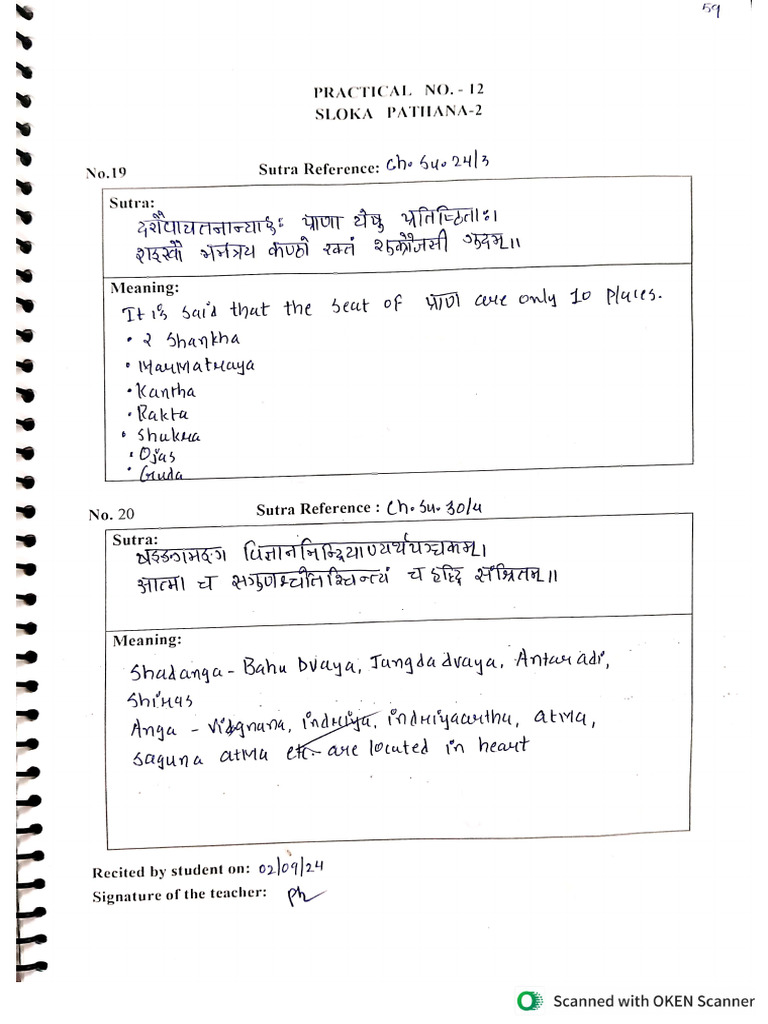 59
PRACTICAL NO. - 12
SLOKA PATHANA-2
No.19 Sutra Reference: Ch. Su. 24/3
Sutra:
दशैवायतनान्याहुः प्राणा येषु प्रतिष्ठिताः।
शङ्खौ मर्मत्रय कण्ठो रक्तं शुक्रौजसी गुदम्॥
Meaning:
It is said that the seat of प्राण are only 10 places.
• 2 Shankha
• Marmatraya
• Kantha
• Rakta
• Shukra
• Ojas
• Guda
No. 20 Sutra Reference : Ch. Su. 30/4
Sutra:
षडङ्गमङ्ग विज्ञानमिन्द्रियाण्यर्थपञ्चकम्।
आत्मा च सगुणश्चेतश्चिन्त्यं च हृदि संश्रितम्॥
Meaning:
Shadanga - Bahu Dvaya, Jangdadvaya, Antaradi,
Shiras
Anga - Vidgnana, indriya, indriyaartha, atma,
saguna atma etc. are located in heart
Recited by student on: 02/09/24
Signature of the teacher:
Scanned with OKEN Scanner